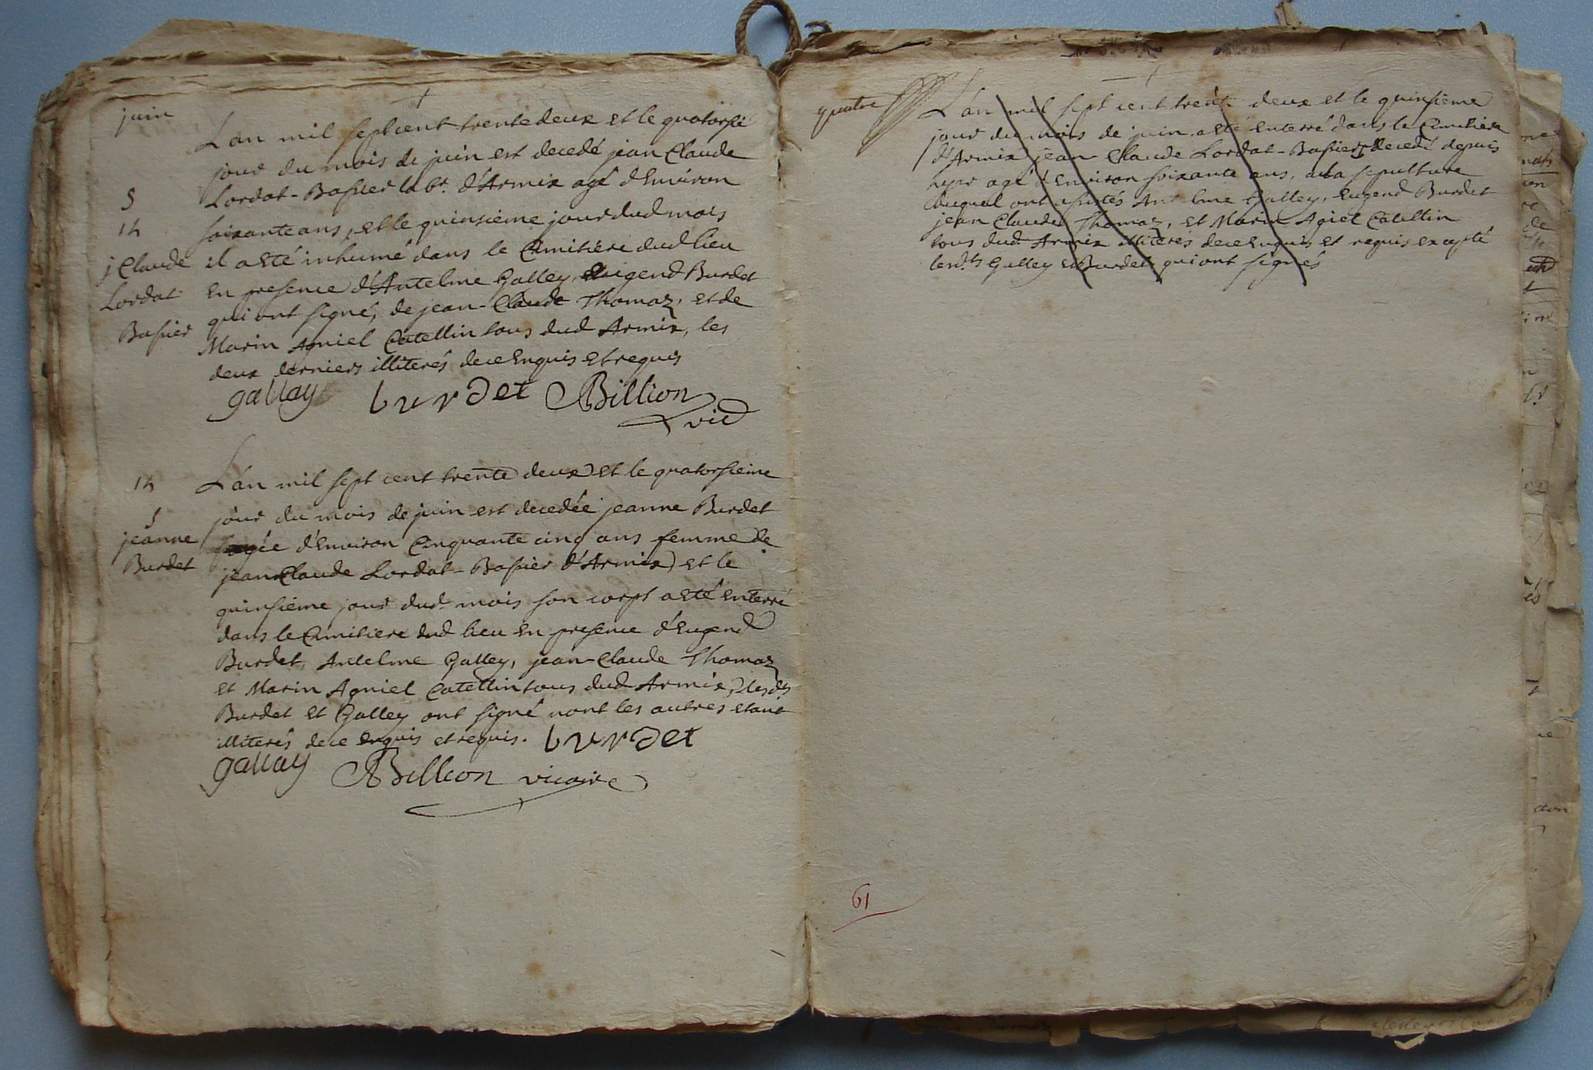 juin
L'an mil sept cent trente deux et le quatorsie
jour du mois de juin est decedé jean Claude
Lordat-Bassier d'Armix agé d'Environ
soixante ans, et le quinsième jour dud mois
il a eté inhumé dans le Cimitiere dud lieu
En presence d'Antelme Galley, Eugend Burdet
qui ont signé, de jean-Claude Thomaz, et de
Marin Agniel Catellin tous dud Armix, les
deux derniers illiterés de ce Enquis et requis
gallay burdet Billion
vic
14
j Claude
Lordat
Bassier
14
jeanne
Burdet
L'an mil sept cent trente deux et le quatorsieme
jour du mois de juin est decedée jeanne Burdet
agée d'Environ Cinquante cinq ans femme de
jean Claude Lordat-Bassier d'Armix et le
quinsième jour dud. mois son corps a eté Enterré
dans le Cimitiere dud lieu En presence d'Eugend
Burdet, Antelme Galley, jean-Claude Thomaz
et Marin Agniel Catellin tous dud Armix, lesdts
Burdet et Galley ont signé non les autres etant
illiterés de ce Enquis et requis. burdet
gallay Billion vicaire
quatre
L'an mil sept cent trente deux et le quinsième
jour du mois de juin a eté Enterré dans le Cimitiere
d'Armix jean Claude Lordat-Bassier decedé depuis
hyer agé d'Environ soixante ans, a la sepulture
duquel ont assistés Antelme Galley, Eugend Burdet
jean Claude Thomaz, et Marin Agiel Catellin
tous dud Armix illiterés de ce Enquis et requis excepté
lesdts Galley et Burdet qui ont signés
61